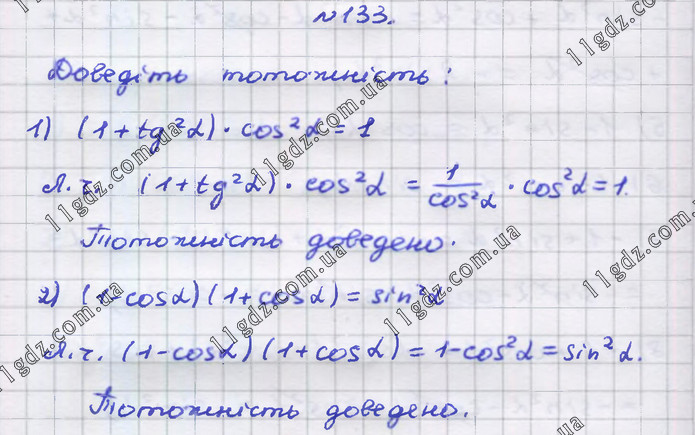 №133.
Доведіть тотожність:
1) (1+tg²α)·cos²α=1
Л.ч. (1+tg²α)·cos²α = 1/cos²α · cos²α=1.
Тотожність доведено.
2) (1-cosα)(1+cosα)=sin²α
Л.ч. (1-cosα)(1+cosα)=1-cos²α=sin²α.
Тотожність доведено.
11gdz.com.ua
11gdz.com.ua
11gdz.com.ua
11gdz.com.ua
11gdz.com.ua
11gdz.com.ua